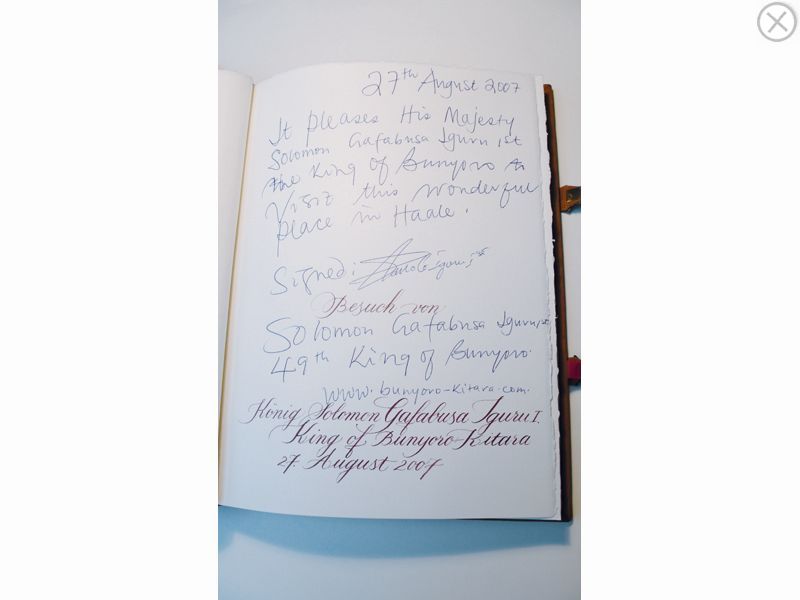 27th August 2007
It pleases His Majesty
Solomon Gafabusa Iguru ist
the King of Bunyoro to
Visit this wonderful
place in Haale.
Signed:
Besuch von
Solomon Gafabusa Iguru ist
49th King of Bunyoro.
www.bunyoro-kitara.com.
König Solomon Gafabusa Iguru I.
King of Bunyoro-Kitara
27. August 2007